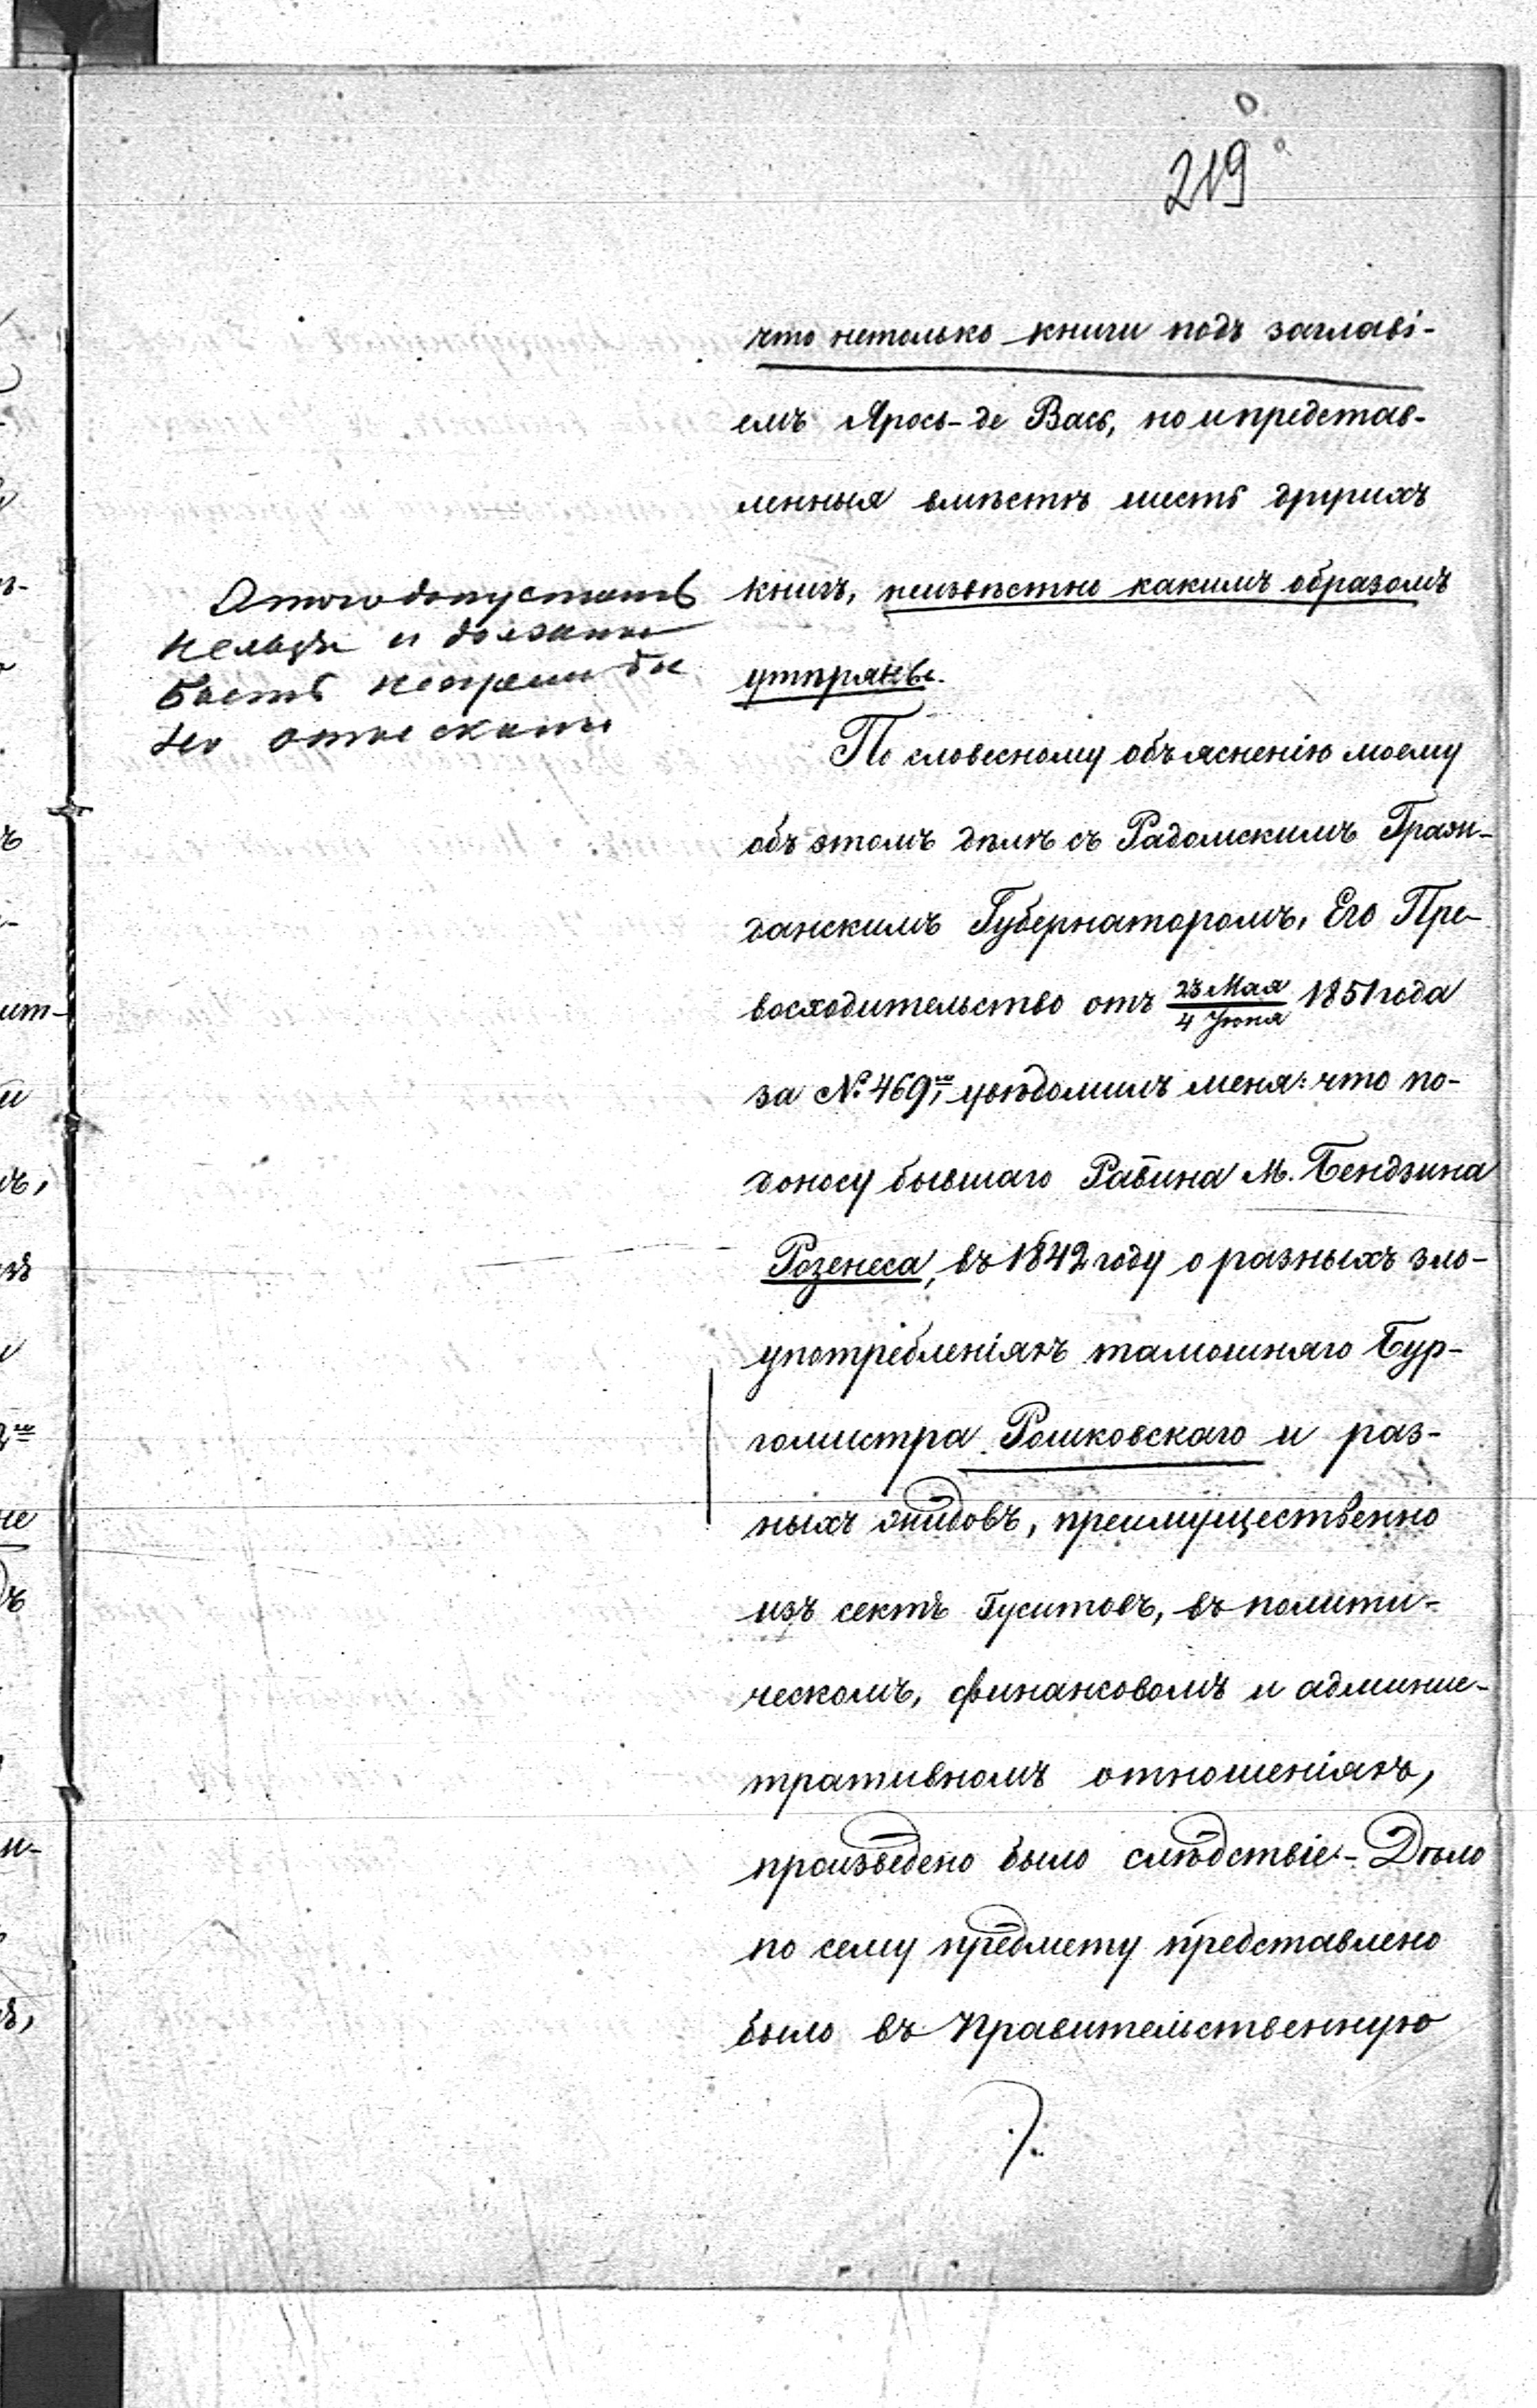 219
что нетолько книги подъ заглаві-
емъ Ярось-де Вась, но и представ-
ленныя вмѣстѣ шесть другихъ
книгъ, неизвѣстно какимъ образомъ
утпряны.
Этого допустить
нельзя и должны
быть непременно
его отыскать
По словесному объясненію моему
объ этомъ дѣлѣ съ Радомскимъ Граж-
данскимъ Губернаторомъ, Его Пре-
восходительство отъ 23 Мая / 4 Іюня 1851 года
за №. 469, увѣдомилъ меня: что по-
доносу бывшаго Рабина М. Бендзина
Розенеса, въ 1842 году о разныхъ зло-
употребленіяхъ тамошняго Бур-
гомистра Рошковскаго и раз-
ныхъ жидовъ, преимущественно
изъ сектъ Гуситовъ, въ полити-
ческомъ, финансовомъ и админис-
тративномъ отношеніяхъ,
произведено было слѣдствіе - Дѣло
по сему предмету представлено
было въ Правительственную